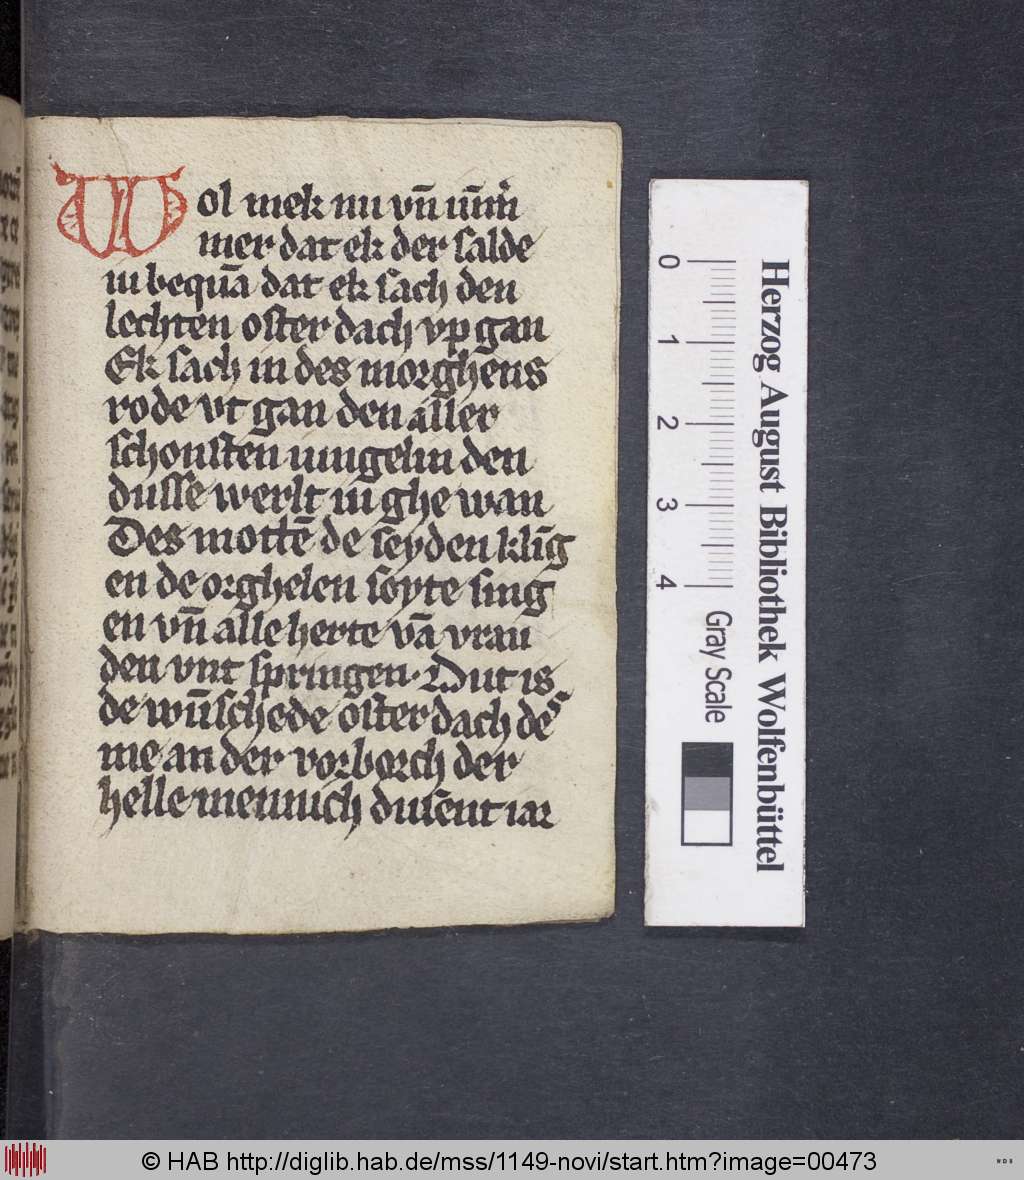 Wol mek nu vn̄ um̄m̄
mer dat ek der salde
in bequā dat ek sach den
lechten oster dach vp gan
Ek sach in des morghens
rode vt gan den aller
schonsten iungelin den
dusse werlt iu ghe wan
Des mottē de seyden klīg
en de orghelen soyte sing
en vn̄ alle herte vā vrau
den vnt springen. Dut is
de wūschede oster dach de
me an der vorborch der
helle mennich dusent iar
Herzog August Bibliothek Wolfenbüttel
0 1 2 3 4 Gray Scale
© HAB http://diglib.hab.de/mss/1149-novi/start.htm?image=00473